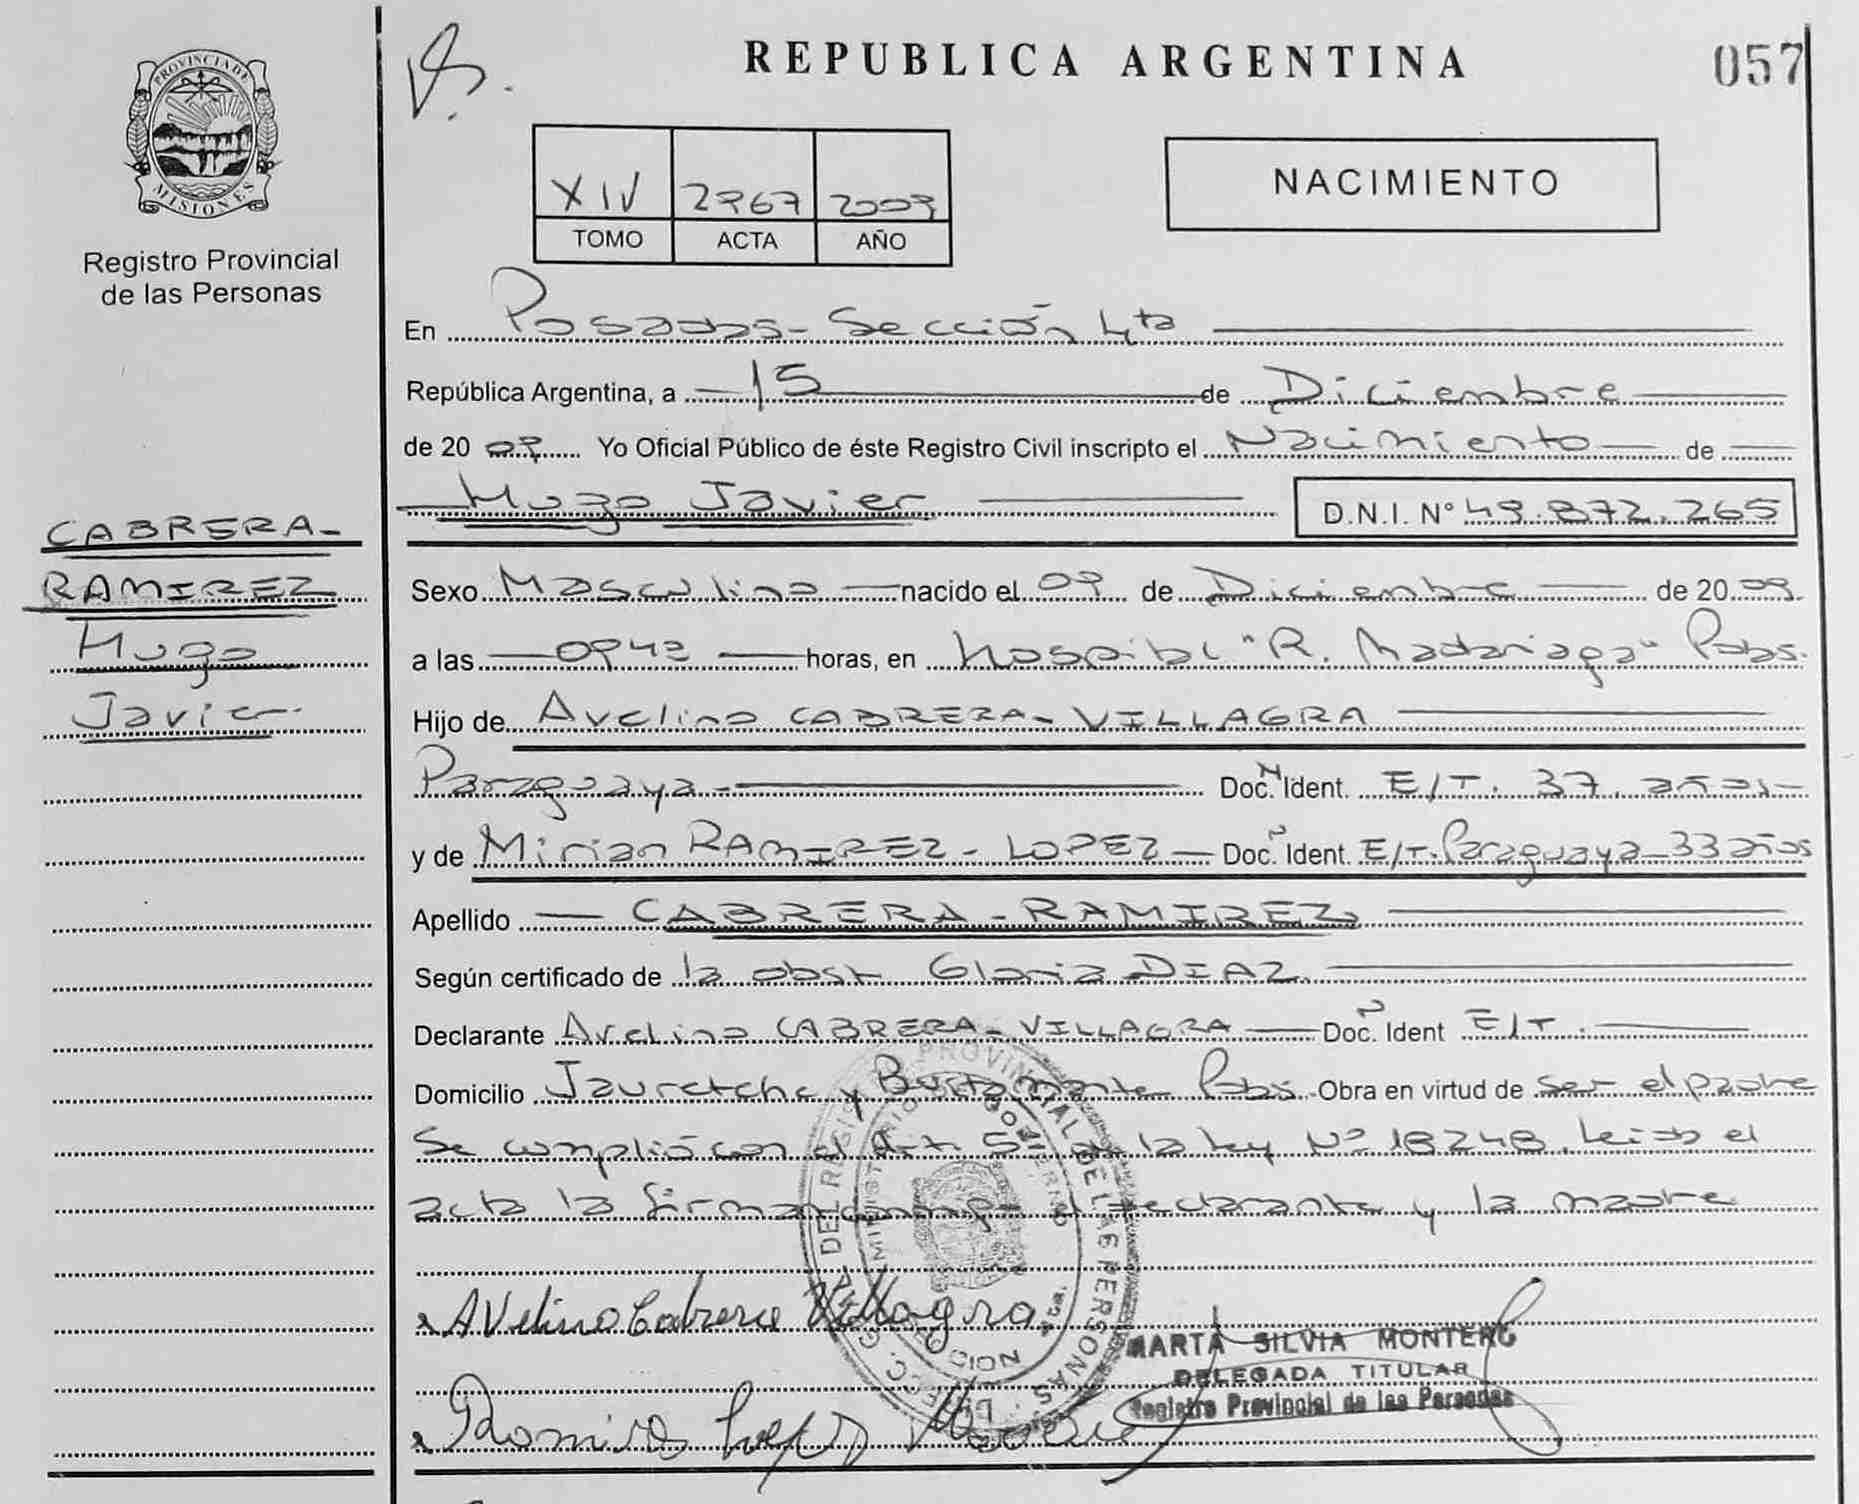 PROVINCIA DE
MISIONES
Registro Provincial
de las Personas
REPUBLICA ARGENTINA
057
XIV 2967 2009
TOMO ACTA AÑO
NACIMIENTO
En Posadas - Sección 4ta
República Argentina, a 15 de Diciembre
de 20 09 Yo Oficial Público de éste Registro Civil inscripto el Nacimiento de
Hugo Javier D.N.I. N° 49.872.265
CABRERA-
RAMIREZ
Hugo
Javier
Sexo Masculino nacido el 09 de Diciembre de 20 09
a las 0942 horas, en hospital "R. Madariaga" Pdas.
Hijo de Avelino CABRERA - VILLAGRA
Paraguaya - Doc. N Ident. E/T. 37. años -
y de Mirian RAMIREZ - LOPEZ - Doc. N Ident. E/T. Paraguaya 33 años
Apellido CABRERA - RAMIREZ
Según certificado de la obst. Gloria DIAZ.
Declarante Avelino CABRERA - VILLAGRA Doc. N Ident E/T.
Domicilio Jauretche y Bustamante Pdas. Obra en virtud de ser el padre
Se cumplió con el Art. 5 de la ley N° 18248. Leida el
acta la firman conmigo el declarante y la madre
Avelino Cabrera Villagra
MARTA SILVIA MONTERO
DELEGADA TITULAR
Registro Provincial de las Personas
Ramirez Lopez